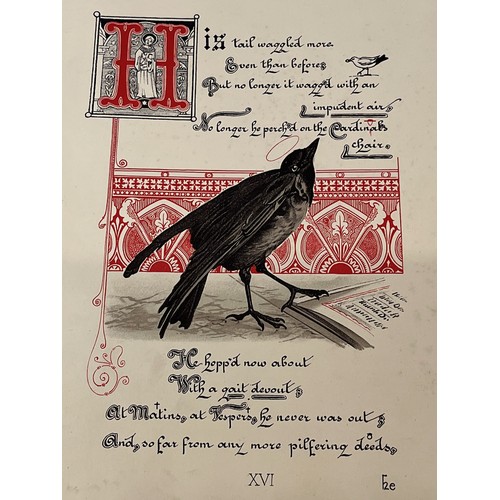 His tail waggled more
Even than before;
But no longer it wagg'd with an
impudent air,
No longer he perch'd on the Cardinal's
chair.
He hopp'd now about
With a gait devout;
At Matins, at Vespers, he never was out;
And, so far from any more pilfering deeds,
XVI